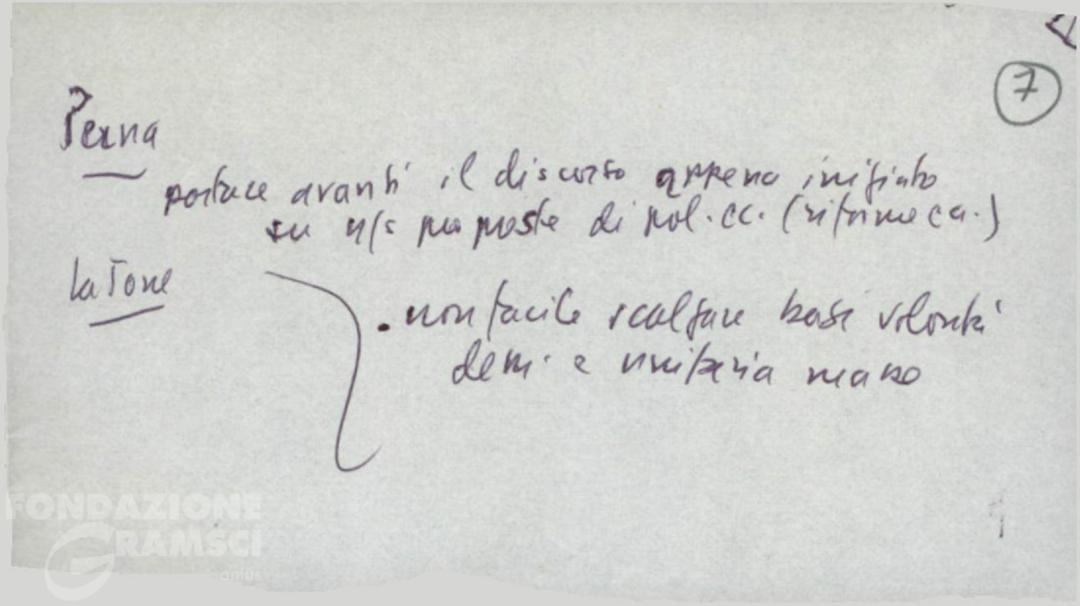 7
Perna
portare avanti il discorso appena iniziato
su n/s proposte di pol. ec. (riforme ec.)
La Torre
. non facile scalfire basi volontà
dem. e unitaria
FONDAZIONE
GRAMSCI